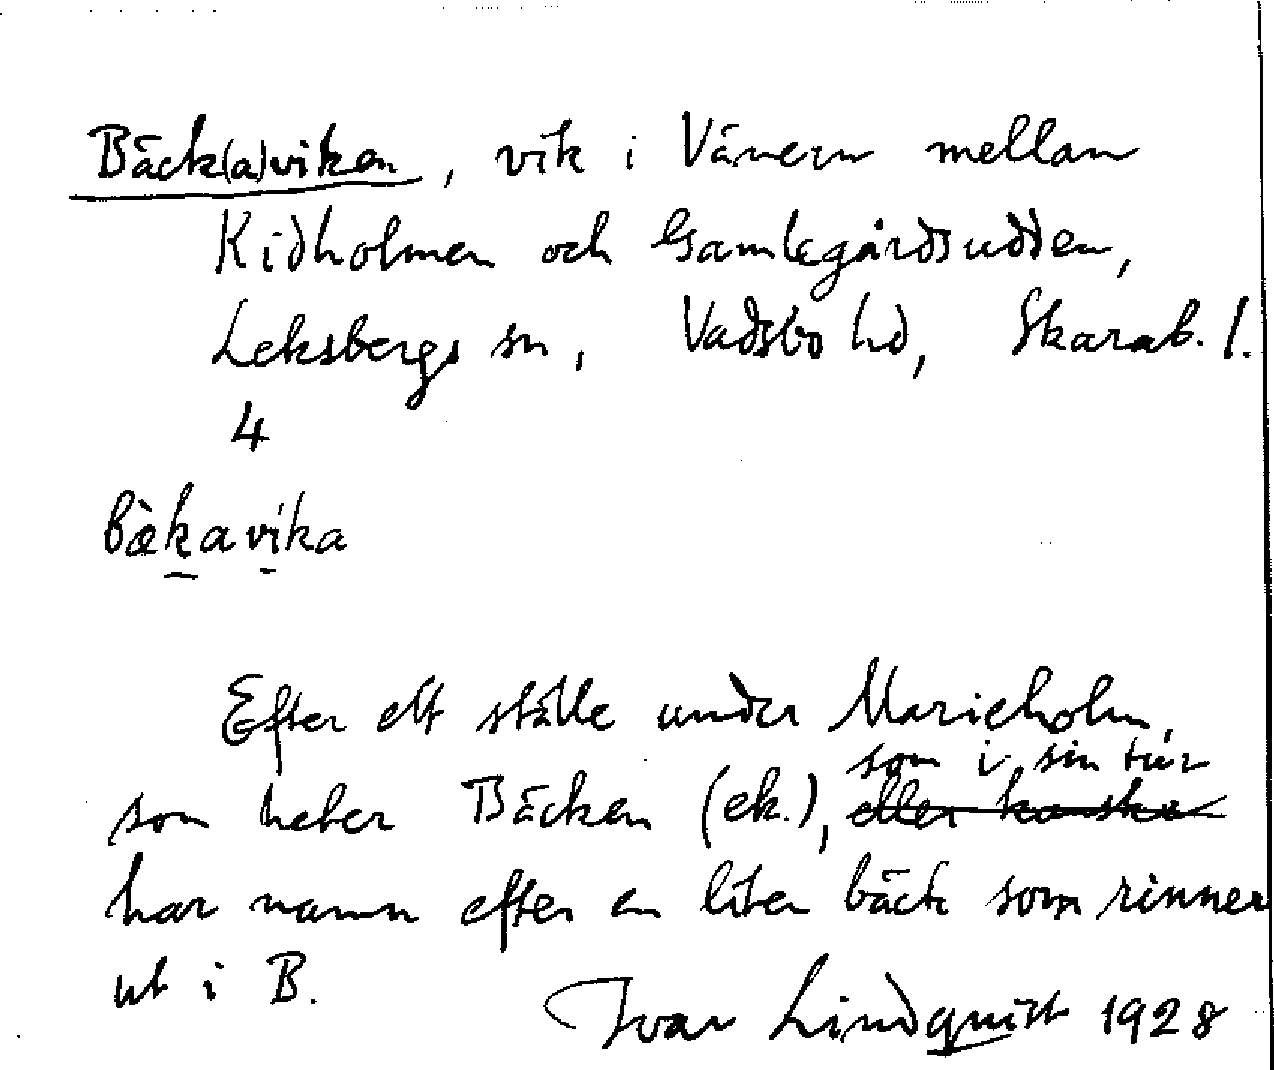 Bäck(a)viken, vik i Vänern mellan
Kidholmen och Gamlegårdsudden,
Leksbergs sn, Vadsbo hd, Skarab. l.
4
bæ̀kavika
Efter ett ställe under Marieholm,
som i sin tur
som heter Bäcken (ek.), eller kanske
har namn efter en liten bäck som rinner
ut i B.
Ivar Lindquist 1928